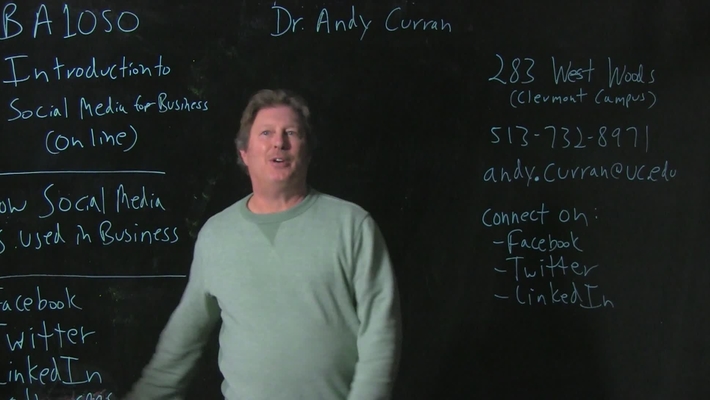 BA1050
Introduction to
Social Media for Business
(online)
ow Social Media
s used in Business
acebook
Twitter
LinkedIn
Dr. Andy Curran
283 West Woods
(Clermont Campus)
513-732-8971
andy.curran@uc.edu
Connect on:
- Facebook
- Twitter
- LinkedIn